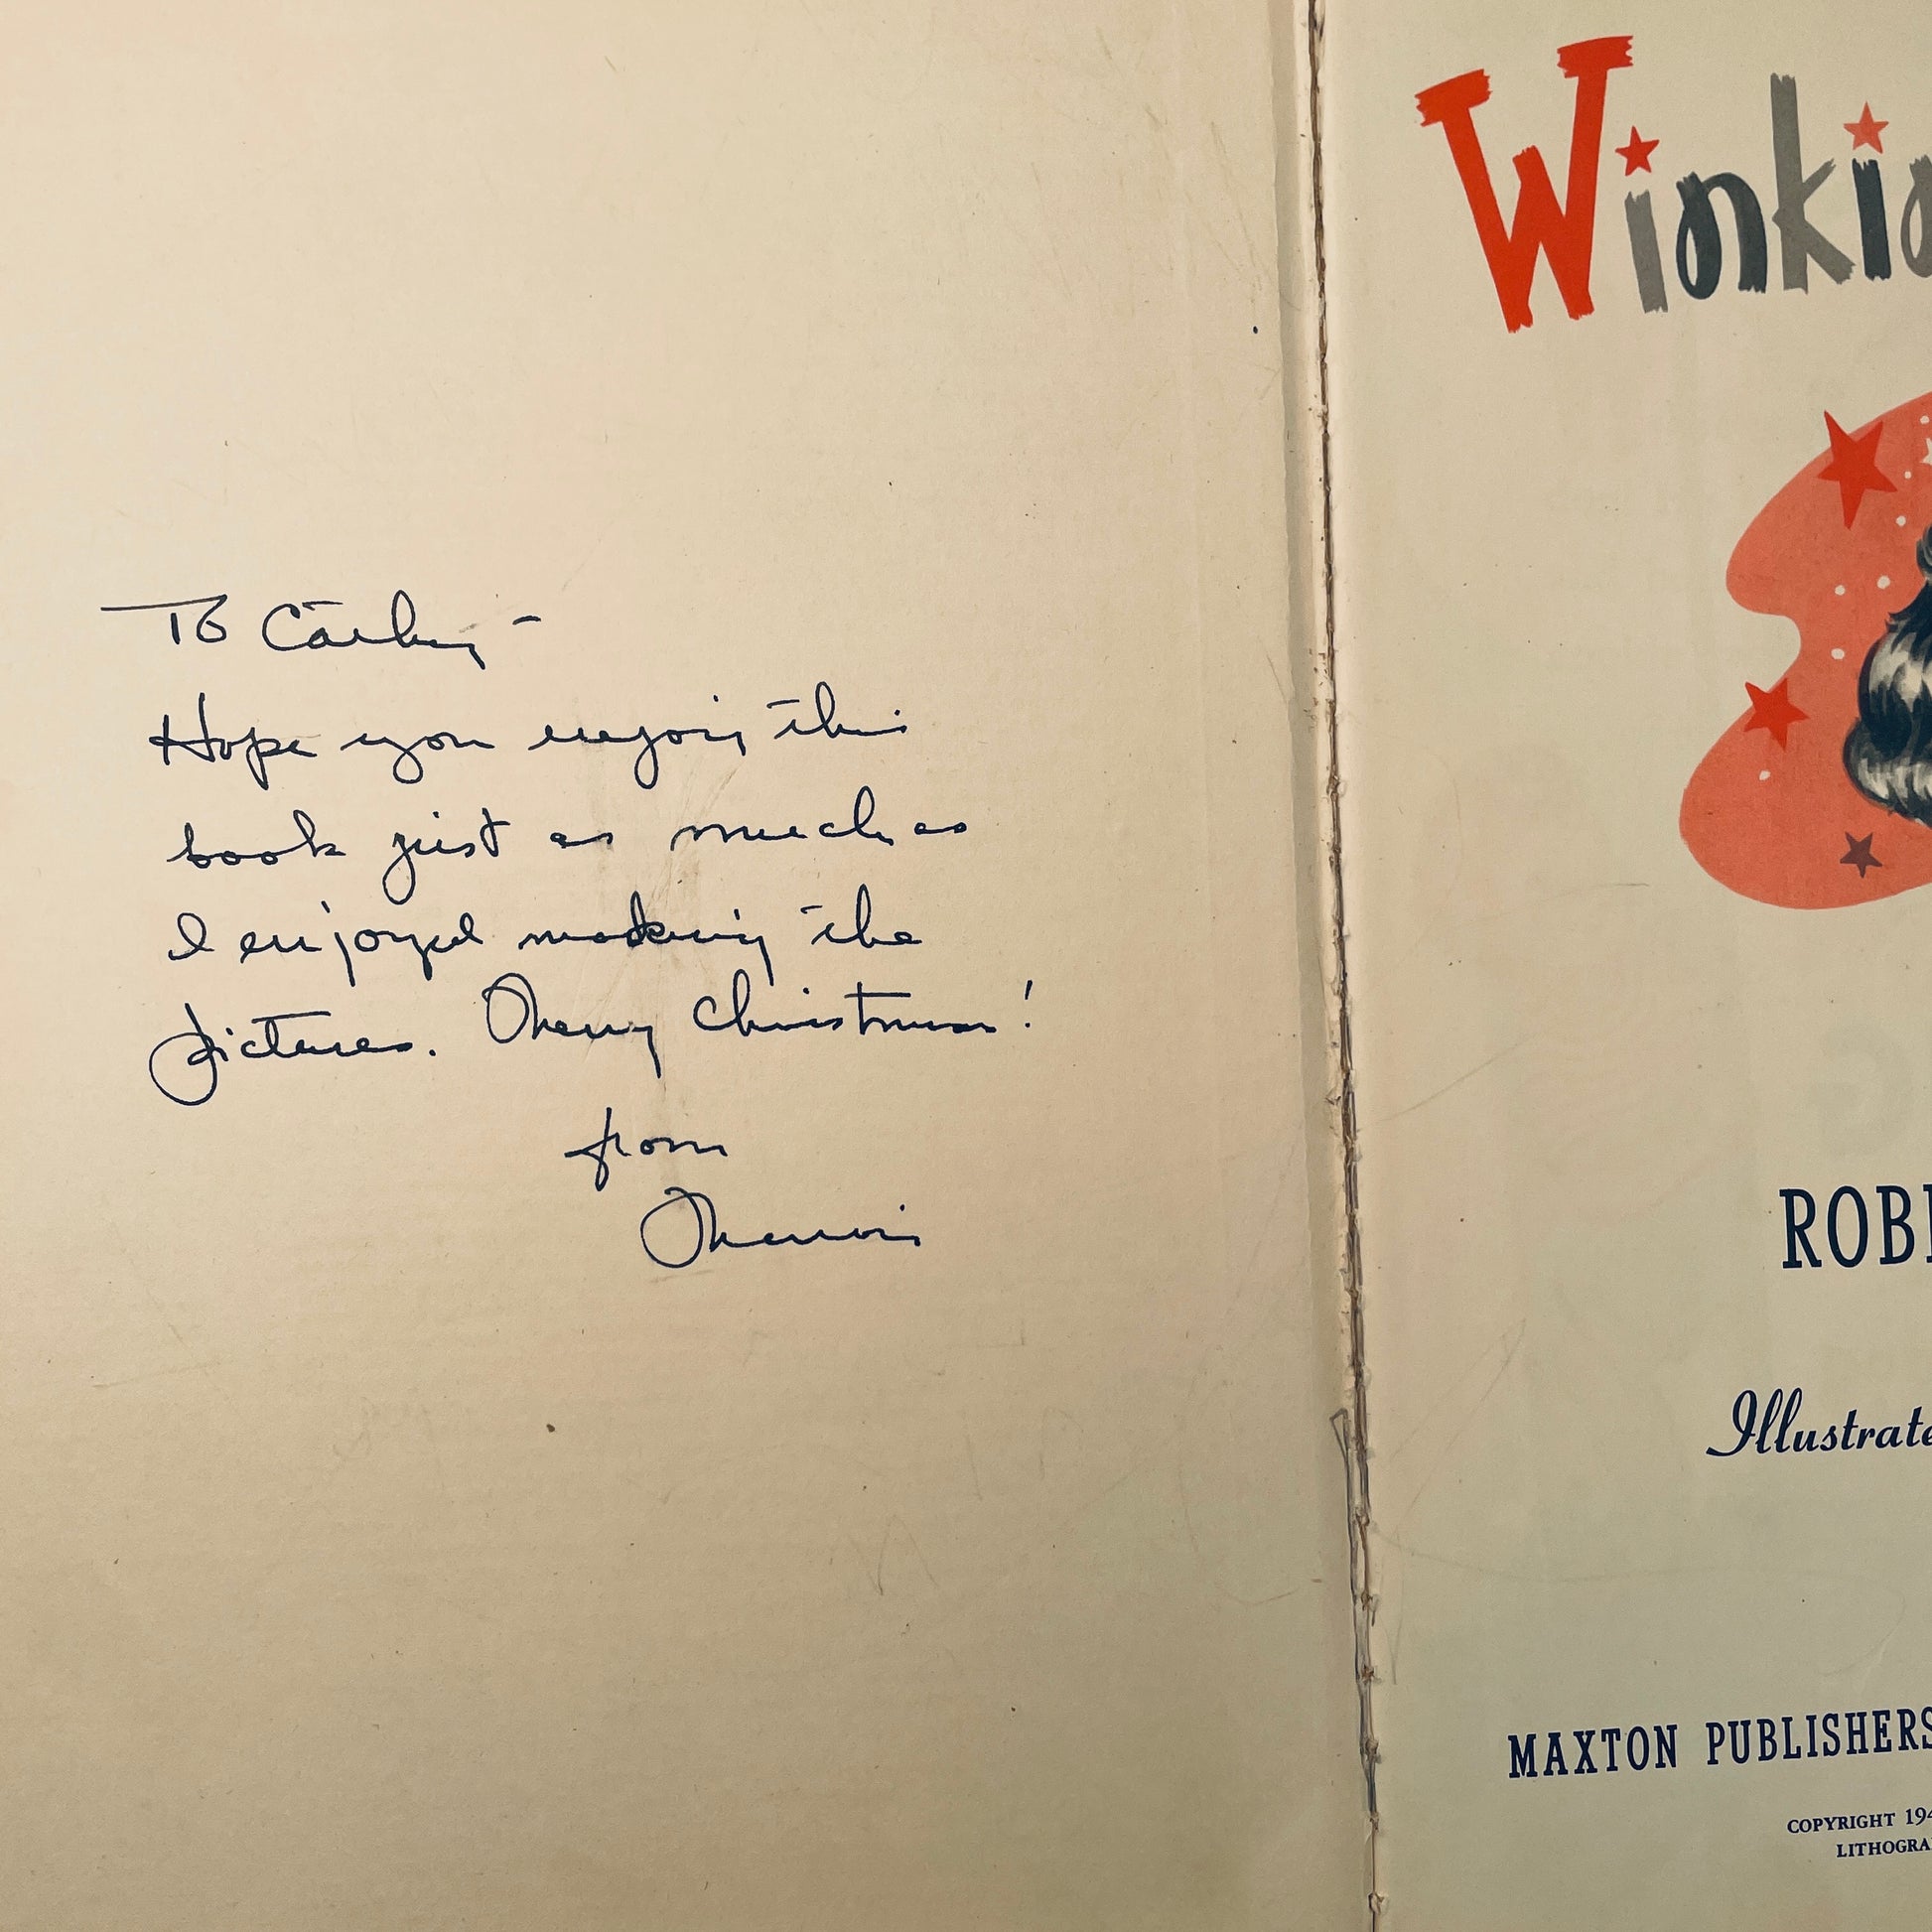 To Cathy -
Hope you enjoy this
book just as much as
I enjoyed making the
pictures. Merry Christmas!
from
Winki
ROB
Illustrate
MAXTON PUBLISHERS
COPYRIGHT 194
LITHOGRA